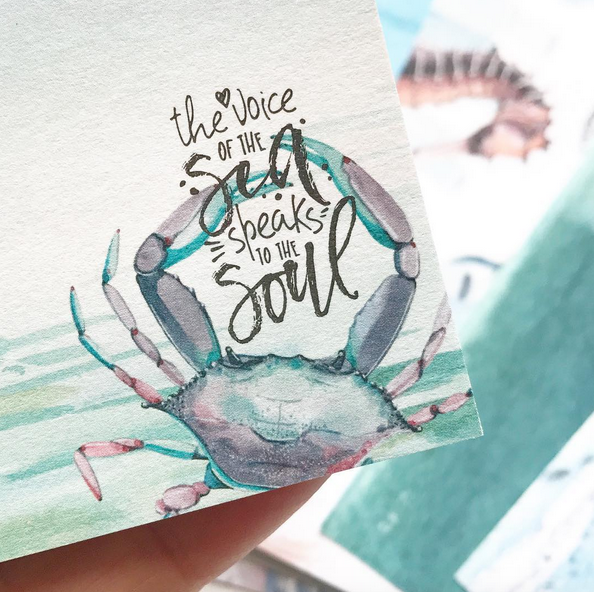 the voice
OF THE
Sea
speaks
TO THE
Soul